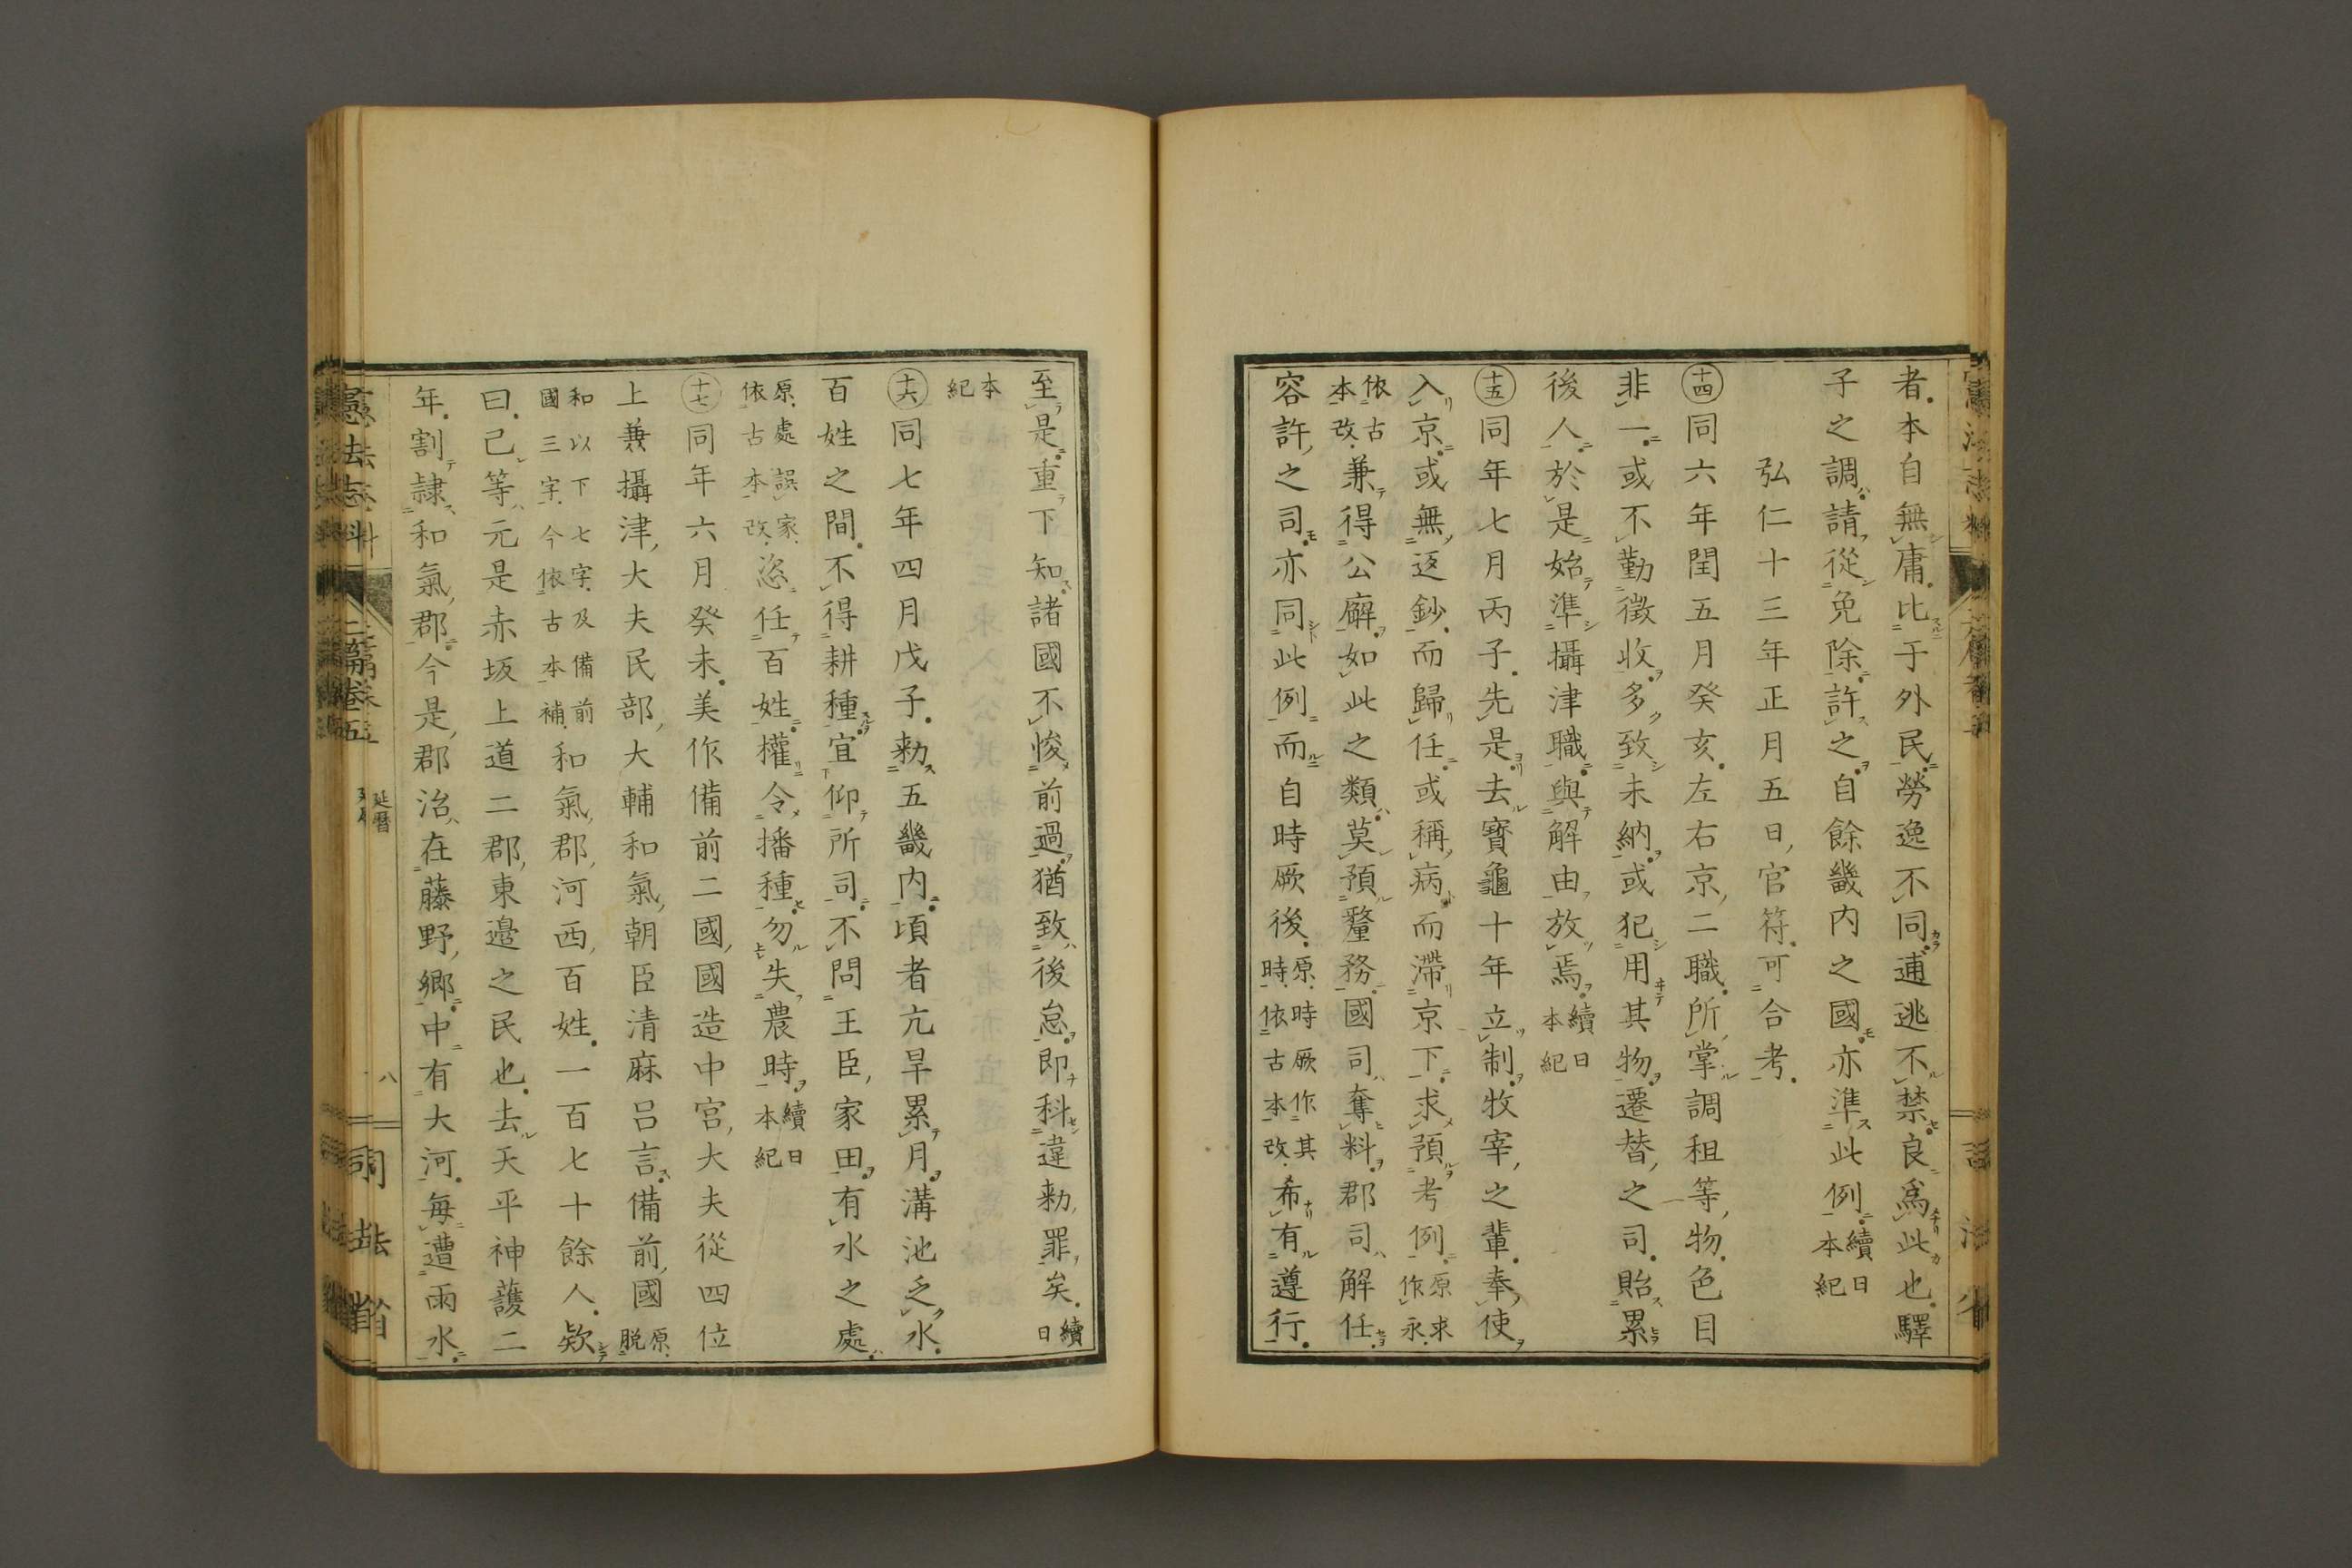 者本自無庸比于外民勞逸不同逋逃不禁良爲此也驛
子之調請從免除許之自餘畿内之國亦準此例續日本紀
弘仁十三年正月五日官符可合考
十四同六年閏五月癸亥左右京二職所掌調租等物色目
非一或不勤徴收多致未納或犯用其物遷替之司貽累
後人於是始準攝津職與解由放焉續日本紀
十五同年七月丙子先是去寶龜十年立制牧宰之輩奉使
入京或無返鈔而歸任或稱病而滯京下求預考例原求作永
依古本改兼得公廨如此之類莫預釐務國司奪料郡司解任
容許之司亦同此例而自時厥後原時厥作其時依古本改希有遵行
至是重下知諸國不悛前過猶致後怠即科違勅罪矣續日
本紀
十六同七年四月戊子勅五畿内頃者亢旱累月溝池乏水
百姓之間不得耕種宜仰所司不問王臣家田有水之處
原處誤家依古本改恣任百姓權令播種勿失農時續日本紀
十七同年六月癸未美作備前二國國造中宮大夫從四位
上兼攝津大夫民部大輔和氣朝臣清麻呂言備前國原脱
和以下七字及備前國三字今依古本補和氣郡河西百姓一百七十餘人欵
曰己等元是赤坂上道二郡東邉之民也去天平神護二
年割隷和氣郡今是郡治在藤野郷中有大河毎遭雨水
憲法志料
二篇卷五
延暦
八
司法省